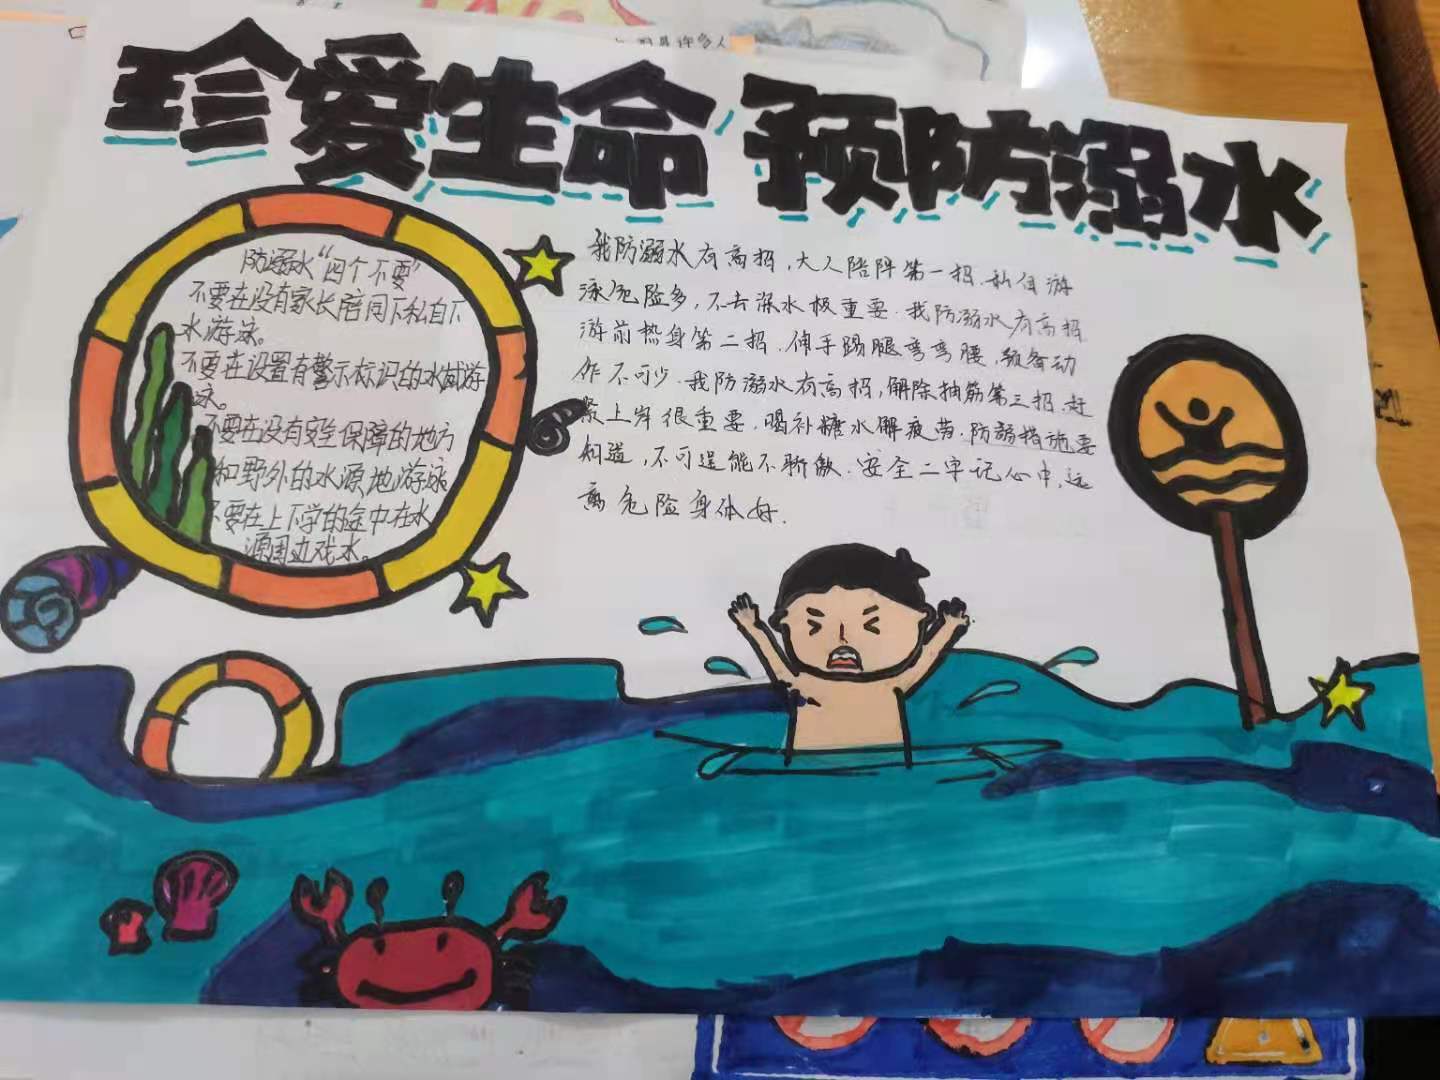 珍爱生命 预防溺水
防溺水“四个不要”
不要在没有家长陪同下私自下
水游泳。
不要在设置有警示标识的水域游
泳。
不要在没有安全保障的地方
和野外的水源地游泳
不要在上下学的途中在水
源周边戏水。
我防溺水有高招,大人陪伴第一招.私自游
泳危险多,不去深水极重要.我防溺水有高招.
游前热身第二招.伸手踢腿弯弯腰,预备动
作不可少.我防溺水有高招,解除抽筋第三招.赶
紧上岸很重要,喝补糖水解疲劳.防溺措施要
知道,不可逞能不骄傲.安全二字记心中,远
离危险身体好.
是许多人